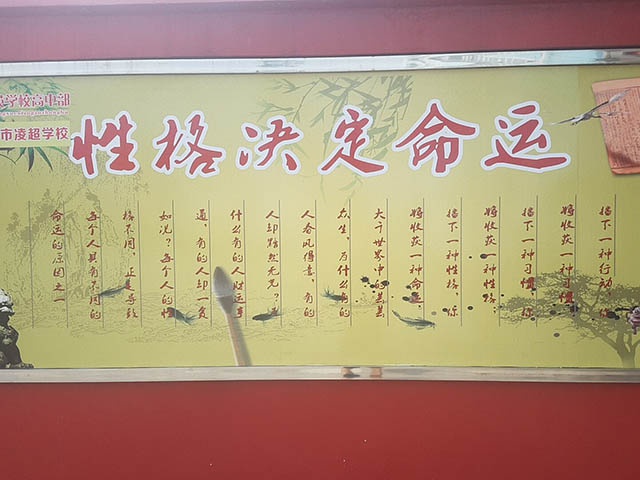 学校高中部
市凌超学校
性格决定命运
播下一种行动，你
将收获一种习惯
播下一种习惯，你
将收获一种性格，
播下一种性格，你
将收获一种命运
大千世界中的芸芸
众生，为什么有的
人春风得意，有的
人却黯然无光？为
什么有的人财运亨
通，有的人却一贫
如洗？每个人的性
格不同，正是导致
每个人具有不同的
命运的原因之一